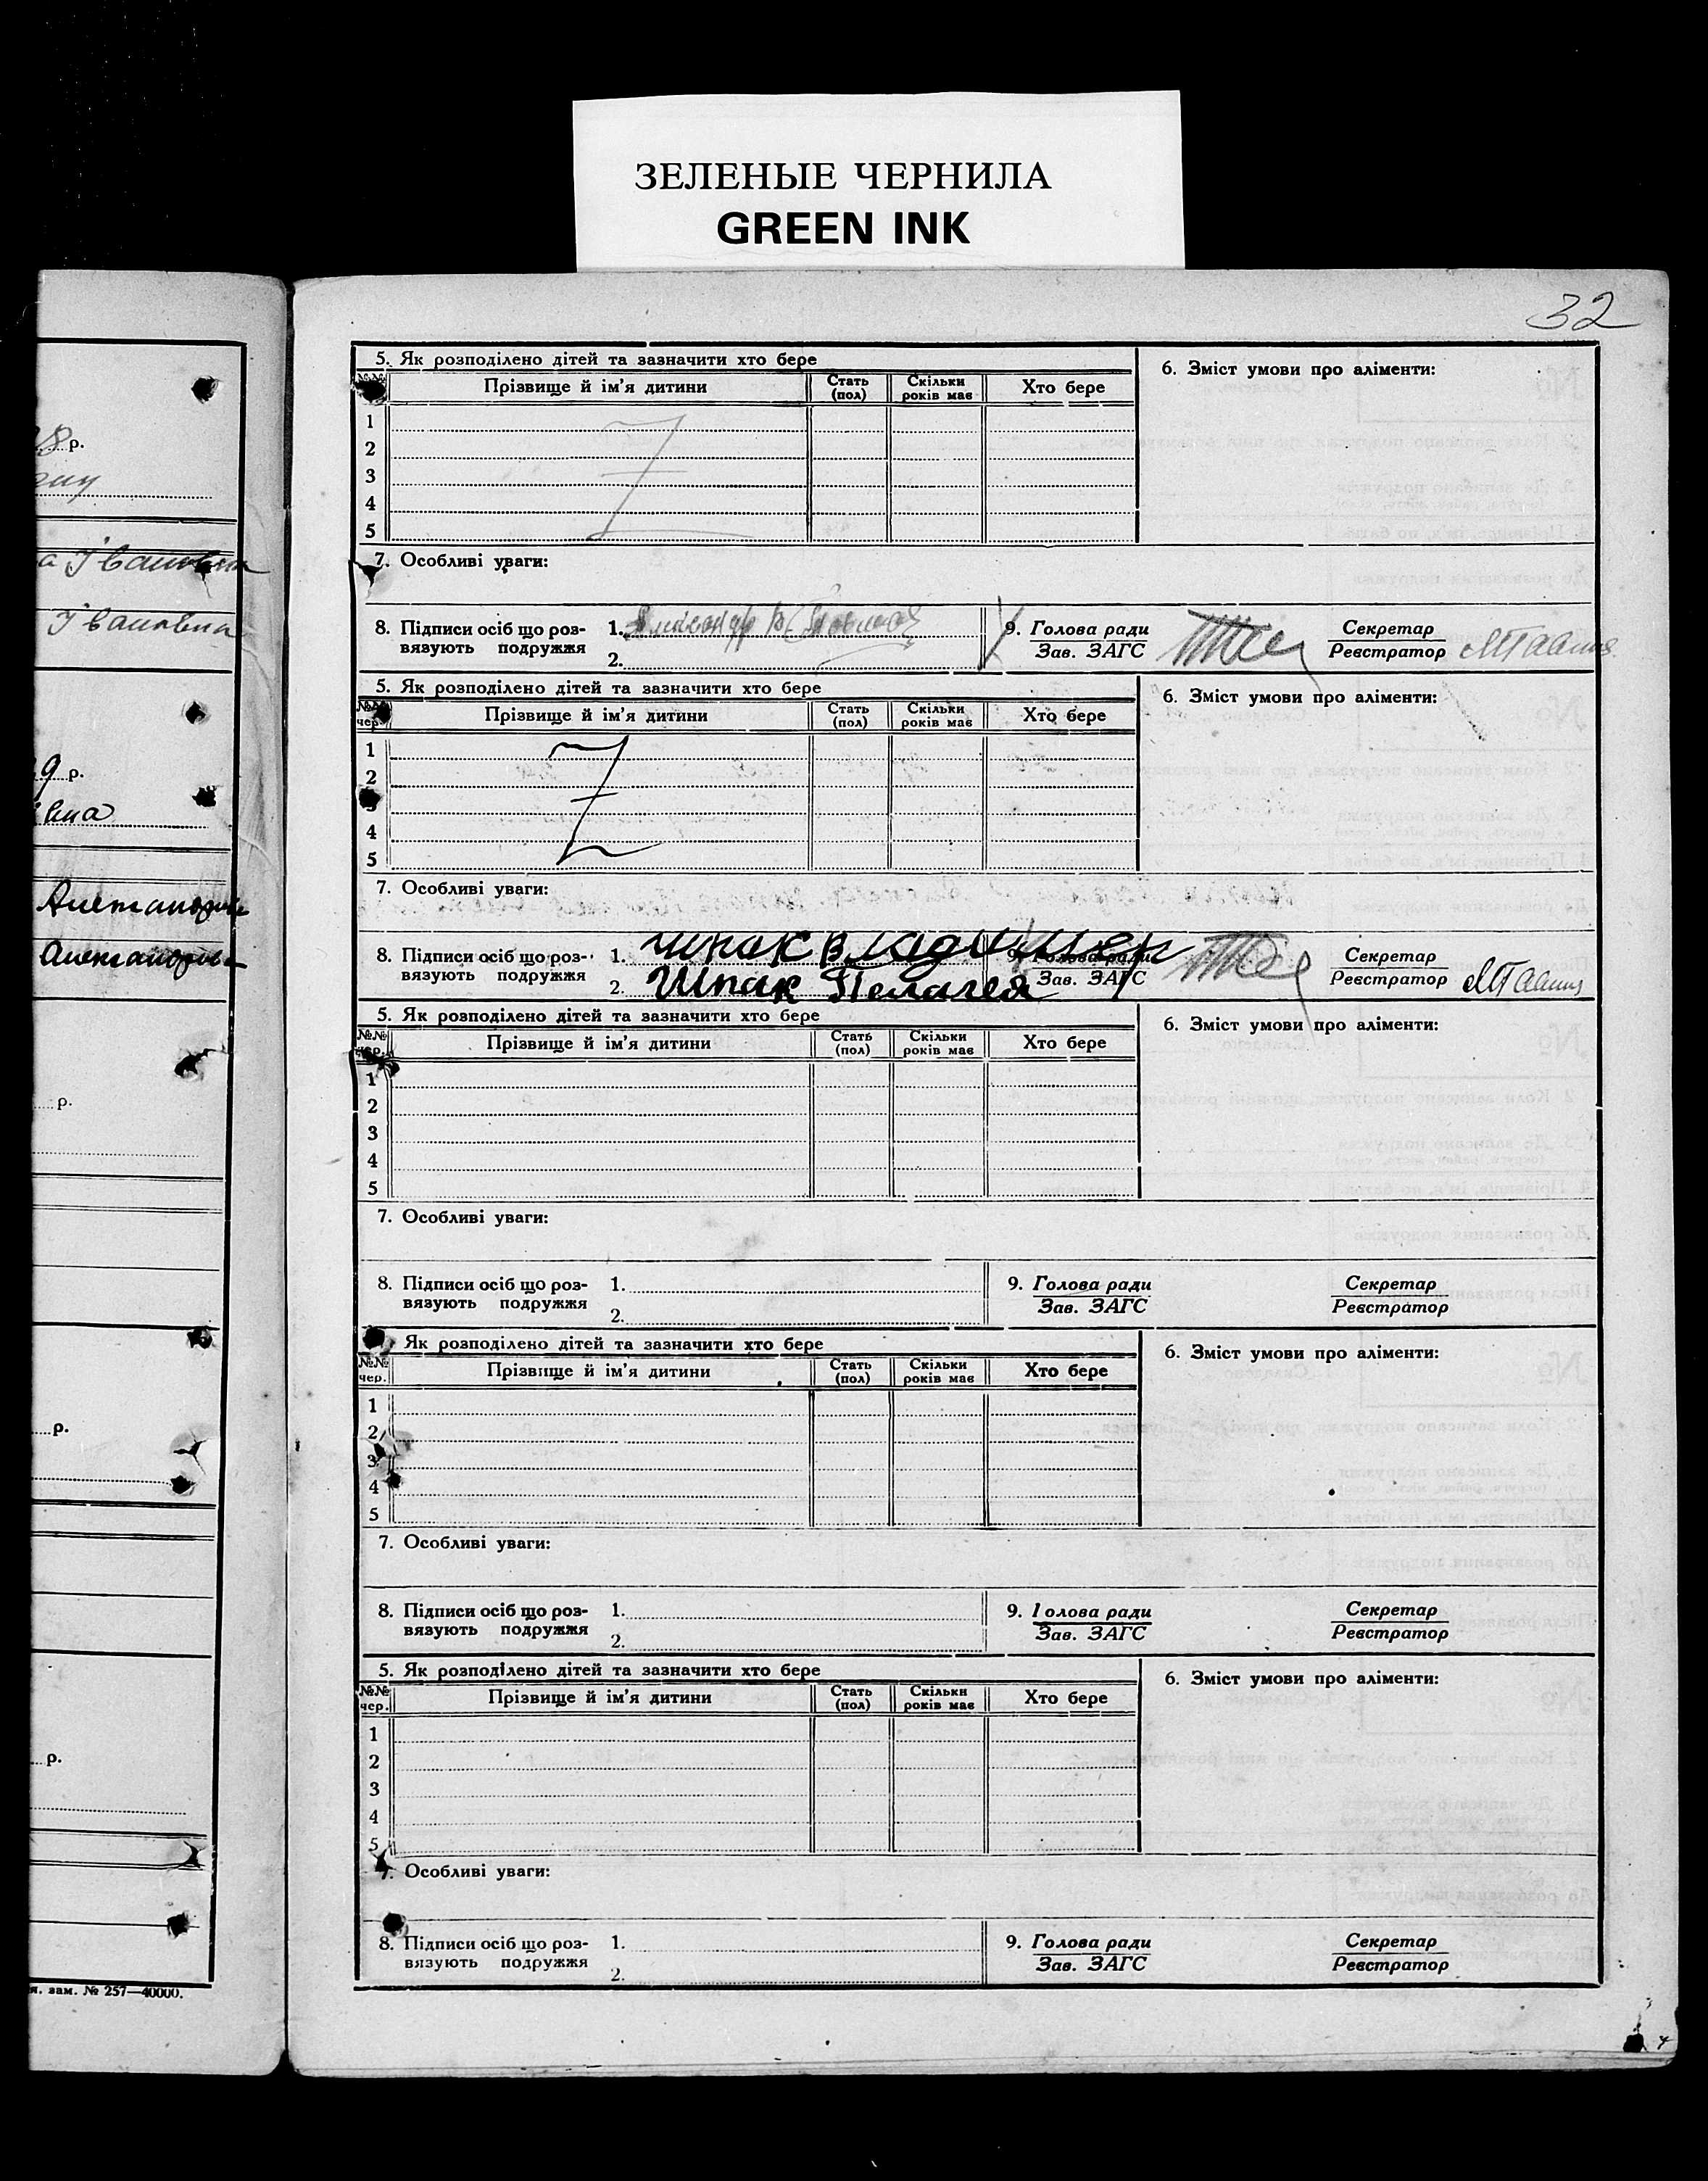 ЗЕЛЕНЫЕ ЧЕРНИЛА
GREEN INK
32
8 р.
а Івановна
Івановна
9 р.
вна
р.
р.
р.
зам. № 257—40000.
5. Як розподілено дітей та зазначити хто бере
6. Зміст умови про аліменти:
Прізвище й ім'я дитини Стать (пол) Скільки років має Хто бере
1
2
3
4
5
7. Особливі уваги:
8. Підписи осіб що роз-вязують подружжя
1.
2.
9. Голова ради
Зав. ЗАГС
Секретар
Реєстратор
5. Як розподілено дітей та зазначити хто бере
6. Зміст умови про аліменти:
№№ чер. Прізвище й ім'я дитини Стать (пол) Скільки років має Хто бере
1
2
3
4
5
7. Особливі уваги:
8. Підписи осіб що роз-вязують подружжя
1. Шпак Владимер
2. Шпак Пелагея
9. Голова ради
Зав. ЗАГС
Секретар
Реєстратор
5. Як розподілено дітей та зазначити хто бере
6. Зміст умови про аліменти:
№№ чер. Прізвище й ім'я дитини Стать (пол) Скільки років має Хто бере
1
2
3
4
5
7. Особливі уваги:
8. Підписи осіб що роз-вязують подружжя
1.
2.
9. Голова ради
Зав. ЗАГС
Секретар
Реєстратор
Як розподілено дітей та зазначити хто бере
6. Зміст умови про аліменти:
№№ чер. Прізвище й ім'я дитини Стать (пол) Скільки років має Хто бере
1
2
3
4
5
7. Особливі уваги:
8. Підписи осіб що роз-вязують подружжя
1.
2.
9. Голова ради
Зав. ЗАГС
Секретар
Реєстратор
5. Як розподілено дітей та зазначити хто бере
6. Зміст умови про аліменти:
№№ чер. Прізвище й ім'я дитини Стать (пол) Скільки років має Хто бере
1
2
3
4
5
7. Особливі уваги:
8. Підписи осіб що роз-вязують подружжя
1.
2.
9. Голова ради
Зав. ЗАГС
Секретар
Реєстратор